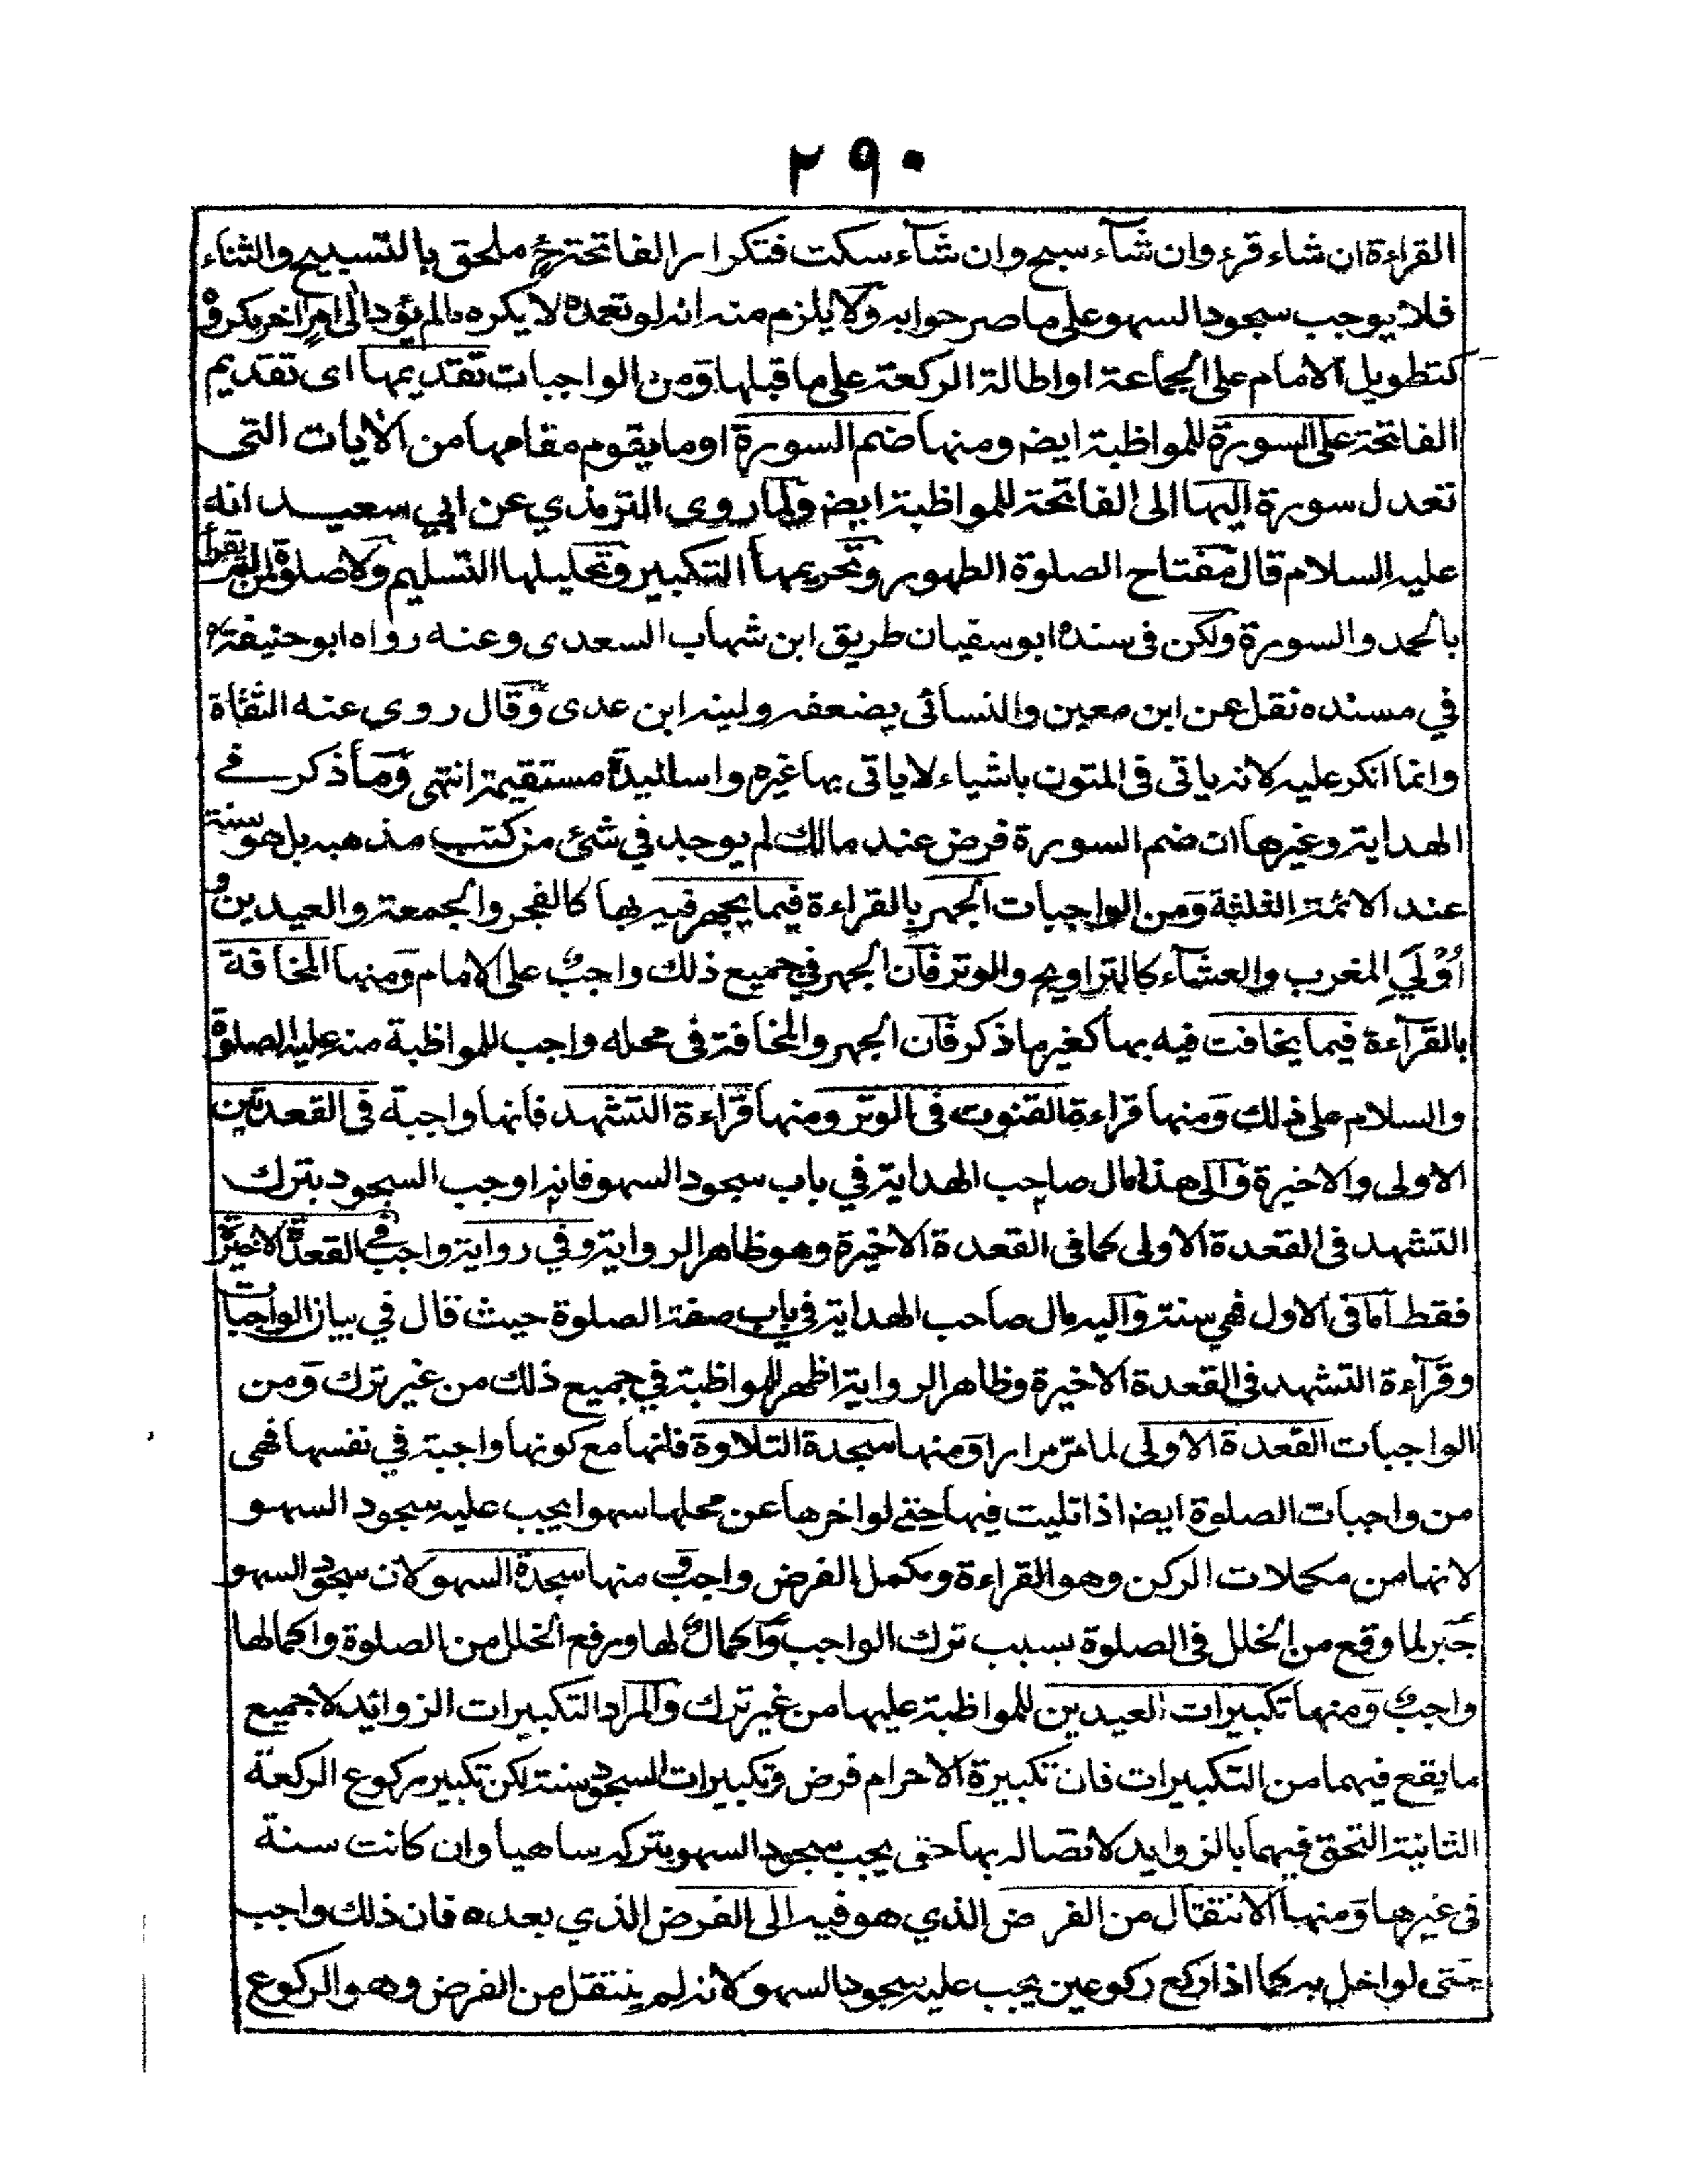 ٢٩٠
القراءة ان شاء قرء وان شآء سبح وان شآء سكت فتكرار الفاتحة ح ملحق بالتسبيح والثناء
فلا يوجب سجود السهو على ما صرحوا به ولا يلزم منه انه لو تعمده لا يكره مالم يؤد الى امر اخر مكروه
كتطويل الامام على الجماعة او اطالة الركعة على ما قبلها ومن الواجبات تقديمها اى تقديم
الفاتحة على السورة للمواظبة ايض ومنها ضم السورة او ما يقوم مقامها من الايات التى
تعدل سورة اليها الى الفاتحة للمواظبة ايض ولما روى الترمذي عن ابي سعيد انه
عليه السلام قال مفتاح الصلوة الطهور وتحريمها التكبير وتحليلها التسليم ولا صلوة لمن لم يقرأ
بالحمد والسورة ولكن فى سنده ابو سفيان طريق ابن شهاب السعدى وعنه رواه ابو حنيفة
في مسنده نقل عن ابن معين والنسائى يضعفه ولينه ابن عدى وقال روي عنه الثقاة
وانما انكر عليه لانه ياتى فى المتون باشياء لا ياتى بها غيره واسانيده مستقيمة انتهى وما ذكر فے
الهداية وغيرها ان ضم السورة فرض عند مالك لم يوجد في شئ من كتب مذهبه بل هو سنة
عند الائمة الثلثة ومن الواجبات الجهر بالقراءة فيما يجهر فيه بها كالفجر والجمعة والعيدين و
أوْلَيَي المغرب والعشآء كالتراويح والوتر فان الجهر في جميع ذلك واجب على الامام ومنها المخافة
بالقرآءة فيما يخافت فيه بها كغير ما ذكر فان الجهر والمخافتة فى محله واجب للمواظبة منه عليه الصلوة
والسلام على ذلك ومنها قراءة القنوت فى الوتر ومنها قراءة التشهد فانها واجبة فى القعدتين
الاولى والاخيرة والى هذا مال صاحب الهداية في باب سجود السهو فانه اوجب السجود بترك
التشهد فى القعدة الاولى كما فى القعدة الاخيرة وهو ظاهر الرواية وفي رواية واجب فى القعدة الاخيرة
فقط اما فى الاول فهي سنة واليه مال صاحب الهداية في باب صفة الصلوة حيث قال في بيان الواجبات
وقرآءة التشهد فى القعدة الاخيرة وظاهر الرواية اظهر للمواظبة في جميع ذلك من غير ترك ومن
الواجبات القعدة الاولى لما مرّ مرارا ومنها سجدة التلاوة فانها مع كونها واجبة في نفسها فهى
من واجبات الصلوة ايضا اذا تليت فيها حتى لو اخرها عن محلها سهوا يجب عليه سجود السهو
لانها من مكملات الركن وهو القراءة ومكمل الفرض واجب ومنها سجدة السهو لان سجود السهو
جَبر لما وقع من الخلل فى الصلوة بسبب ترك الواجب واكمال لها ورفع الخلل من الصلوة واكمالها
واجب ومنها تكبيرات العيدين للمواظبة عليها من غير ترك والمراد التكبيرات الزوائد لا جميع
ما يقع فيهما من التكبيرات فان تكبيرة الاحرام فرض وتكبيرات السجود سنة لكن تكبير ركوع الركعة
الثانية التحق فيهما بالزوايد لاتصاله بها حتى يجب سجود السهو بتركه ساهيا وان كانت سنة
فى غيرها ومنها الانتقال من الفرض الذي هو فيه الى الفرض الذي بعده فان ذلك واجب
حتى لو اخل به كما اذا ركع ركوعين يجب عليه سجود السهو لانه لم ينتقل من الفرض وهو الركوع